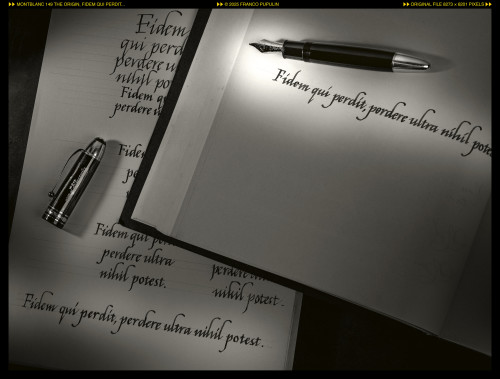 MONTBLANC 149 THE ORIGIN. FIDEM QUI PERDIT...
© 2025 FRANCO PUPULIN
ORIGINAL FILE 8273 × 6201 PIXELS
Fidem
qui perd
perdere u
nihil po
Fidem q
perdere u
Fidem qui perdit, perdere ultra nihil pote
Fidem
qui
pe
Fidem qui per
perdere ultra
nihil potest.
perdere
nihil potest.
Fidem qui perdit, perdere ultra nihil potest.